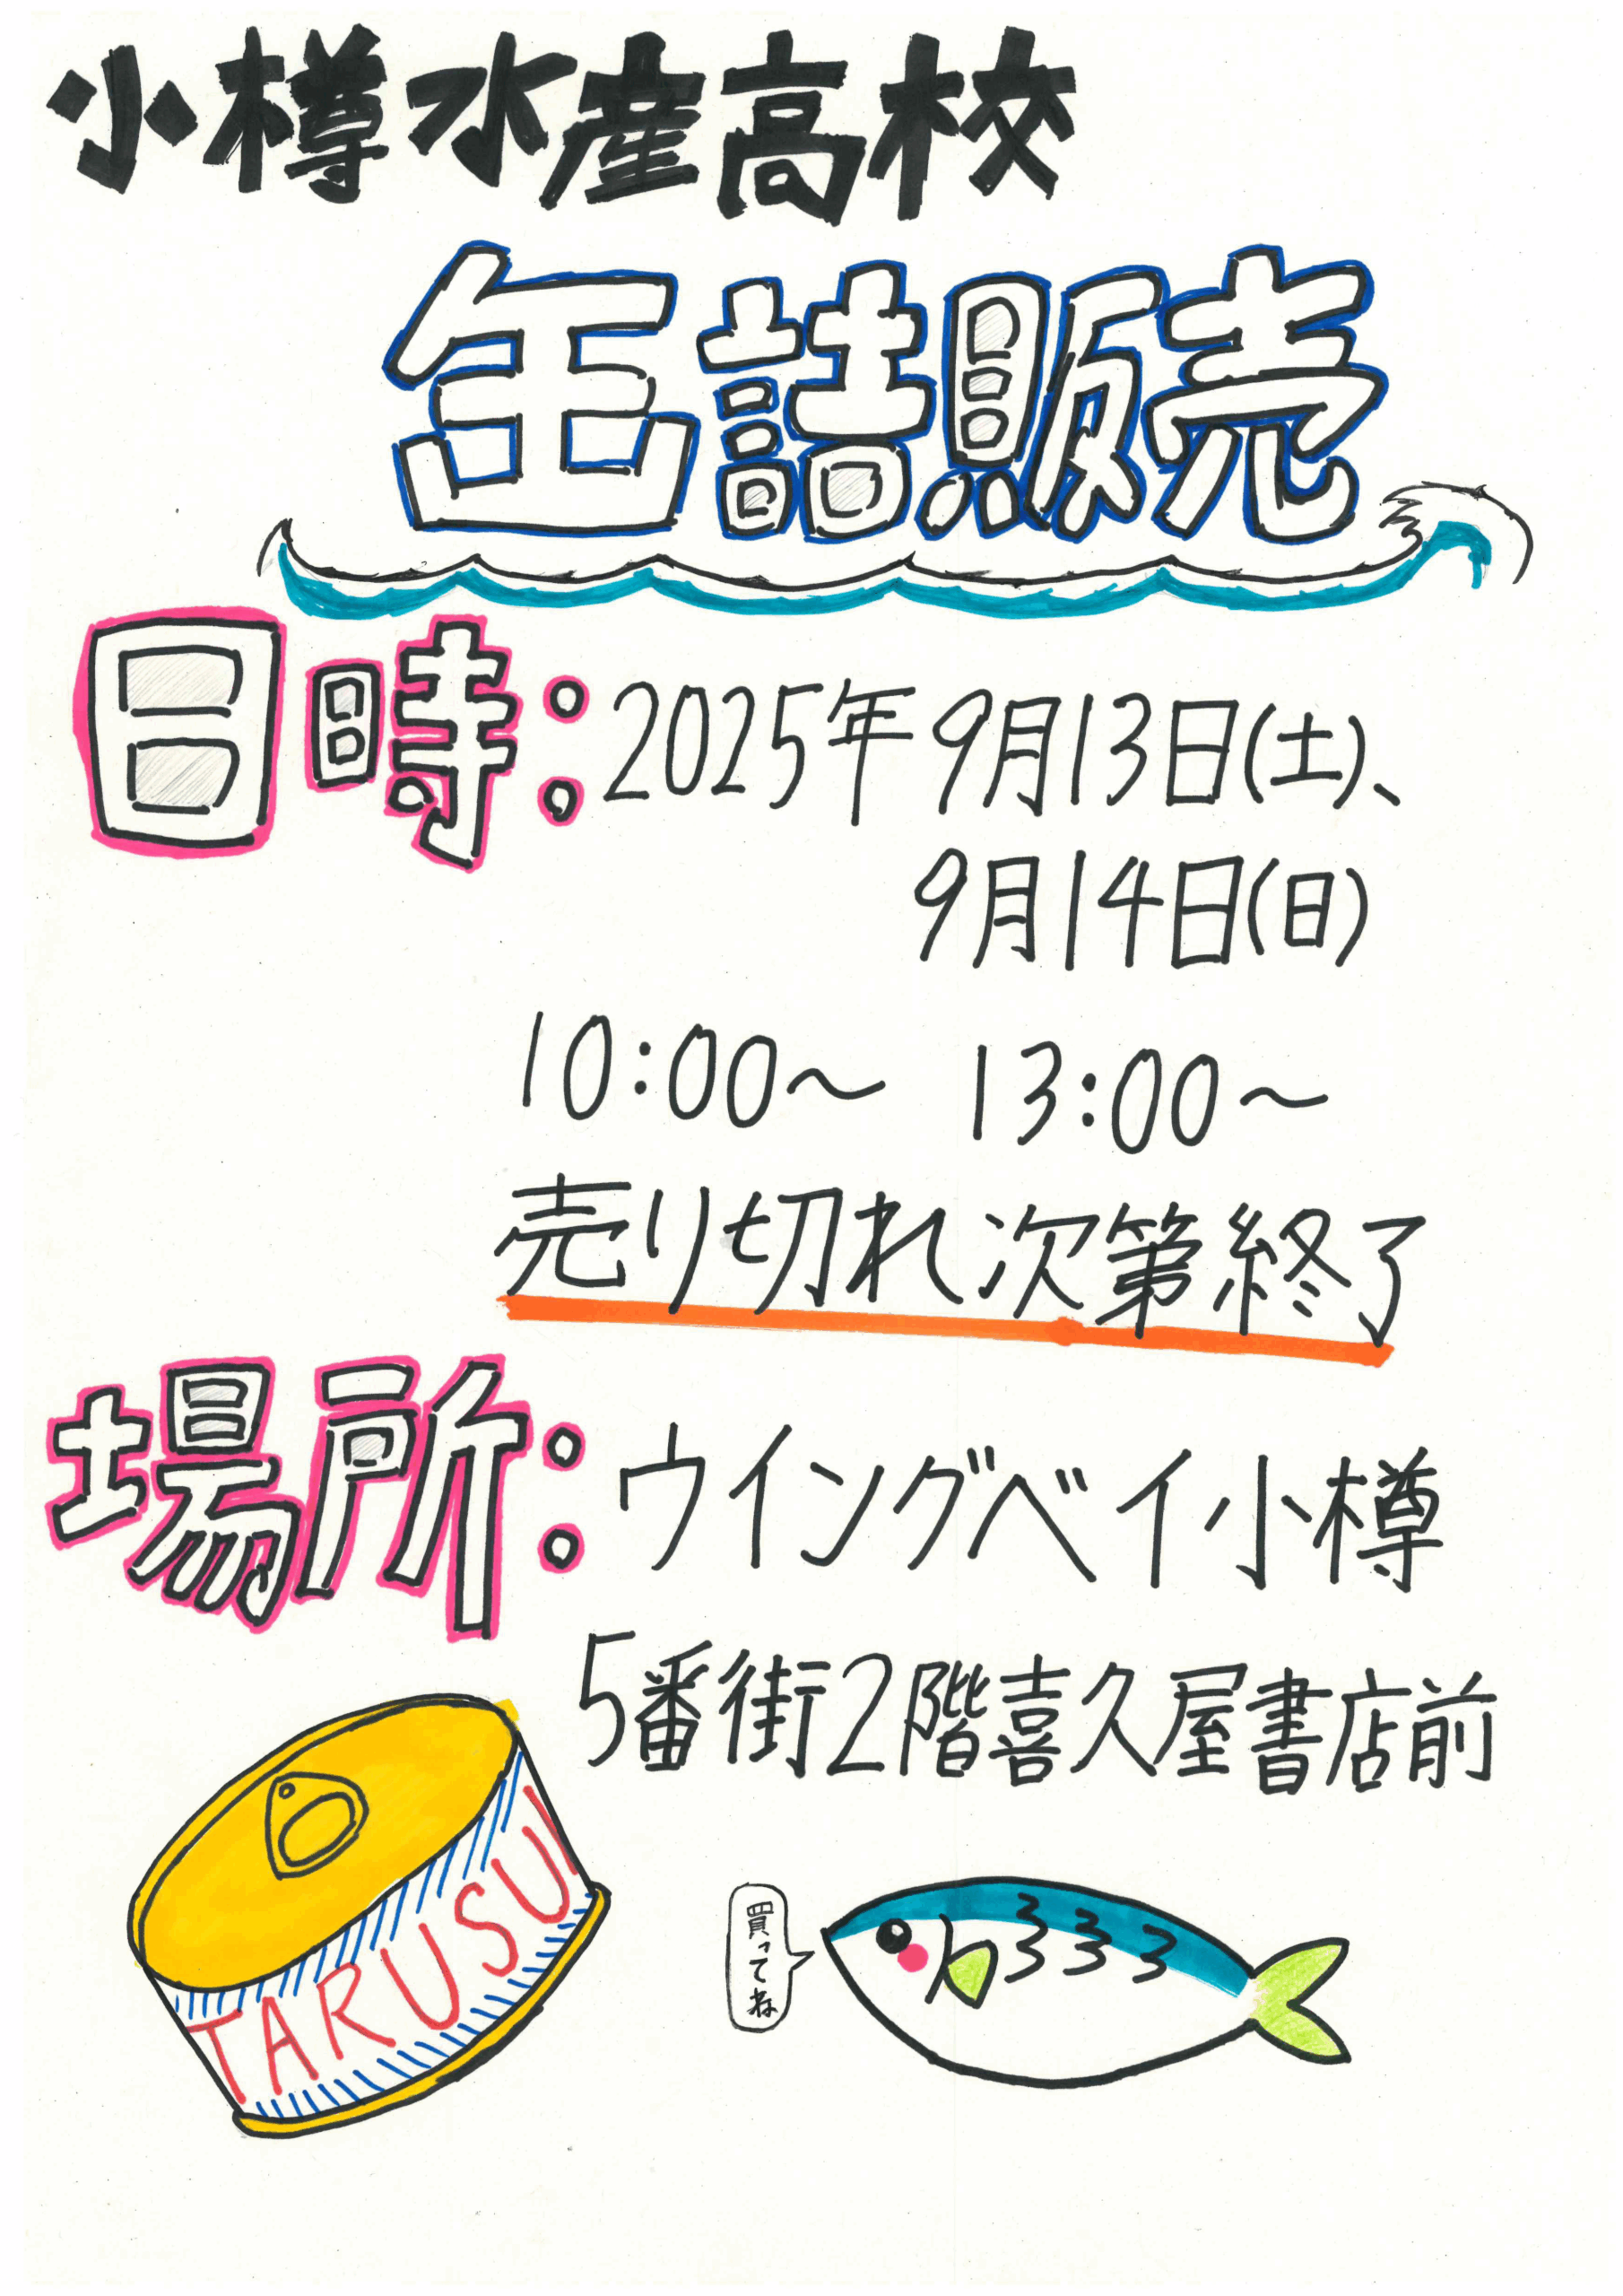 小樽水産高校
缶詰販売
日時:2025年9月13日(土)、
9月14日(日)
10:00～ 13:00～
売り切れ次第終了
場所:ウイングベイ小樽
5番街2階喜久屋書店前
TARUSUI
買ってね